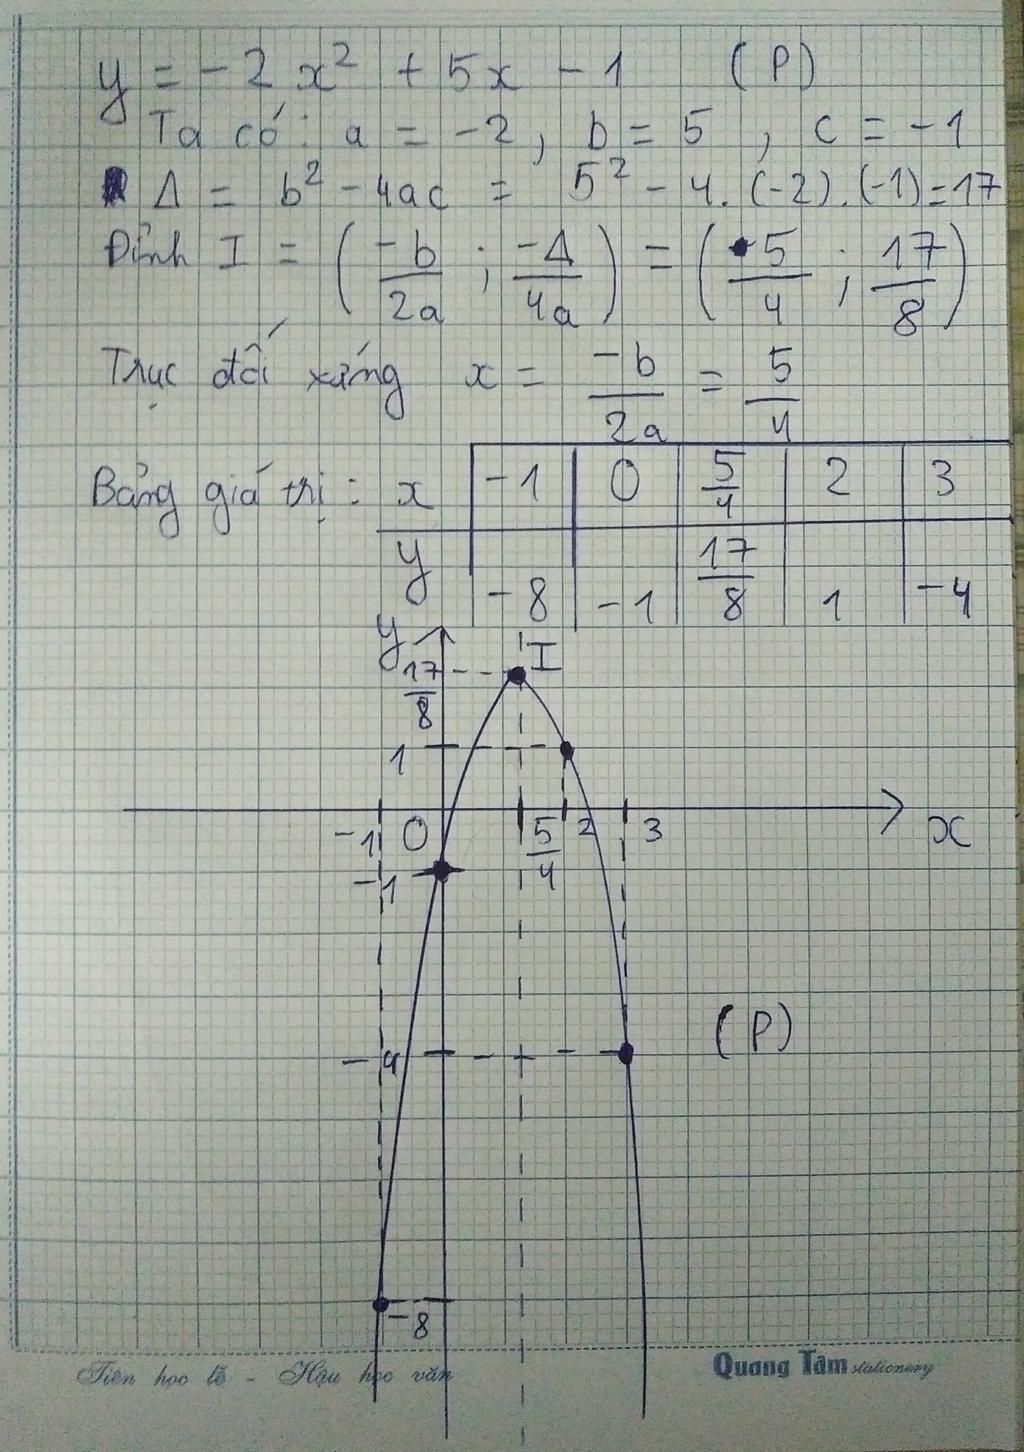 y = -2x² + 5x - 1 (P)
Ta có: a = -2, b = 5, c = -1
Δ = b² - 4ac = 5² - 4.(-2).(-1) = 17
Đỉnh I = (-b/2a ; -Δ/4a) = (5/4 ; 17/8)
Trục đối xứng x = -b/2a = 5/4
Bảng giá trị: x -1 0 5/4 2 3
y -8 -1 17/8 1 -4
y
17/8 I
1
-1 0 5/4 2 3 x
-1
(P)
-4
-8
Tiên học lễ - Hậu học văn Quang Tâm stationery